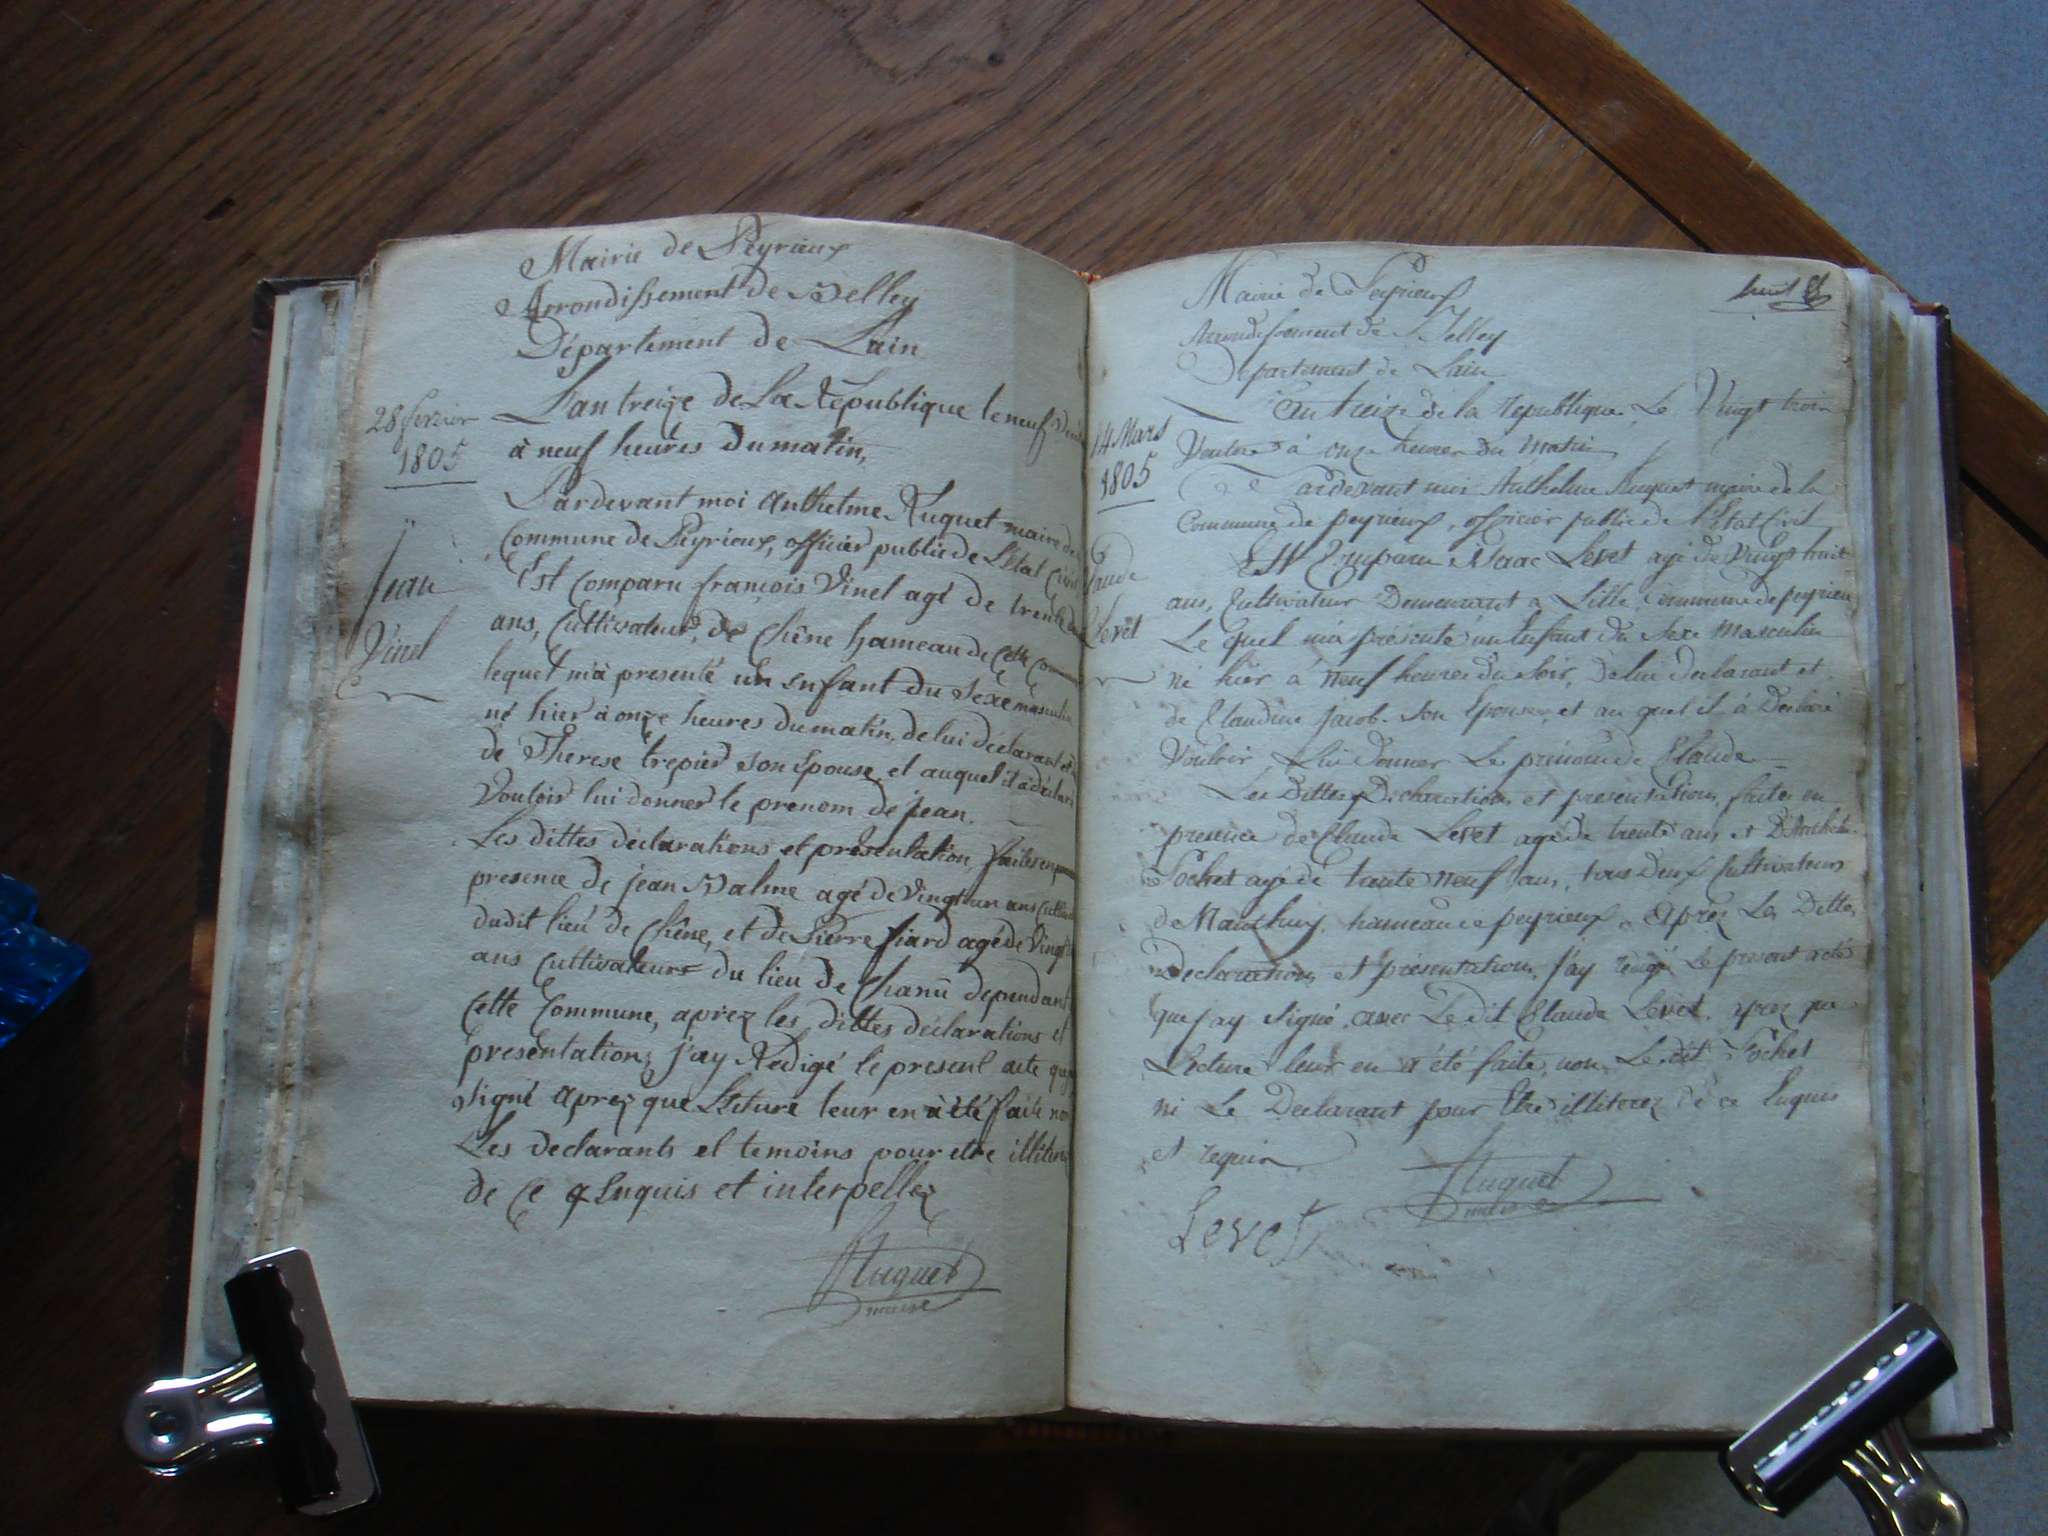 Mairie de Peyrieux
Arrondissement de Belley
Département de Lain
28 fevrier
1805
L'an treize de La République le neuf
à neuf heures du matin,
Jean
Vinel
Pardevant moi Anthelme Huguet maire de
Commune de Peyrieux, officier public de L'Etat Civil
Est Comparu françois Vinel agé de trente
ans, Cultivateur, de Chêne hameau de Cette
lequel m'a presenté un enfant du Sexe masculin
né hier à onze heures du matin, de lui déclarant et
de Therese trepier son Epouse et auquel il à déclaré
Vouloir lui donner le prenom de jean.
Les dittes déclarations et présentation, faites en
presence de jean Balme agé de Vingt un ans
dudit lieu de Chêne, et de Pierre fiard agé de Vingt
ans Cultivateurs du lieu de Chanû dependant
Cette Commune, aprez les dittes déclarations et
presentations, j'ay Rédigé le present acte que
signé aprez que Lecture leur en à été faite non
Les declarants et temoins pour etre
de Ce Enquis et interpellez
Huguet
maire
Mairie de Peyrieux
Arrondissement de Belley
Departement de Lain
14 Mars
1805
L'An treize de la republique Le Vingt trois
Ventose à onze heures du Matin
Claude
Levet
Pardevant moi Anthelme Huguet maire de la
Commune de peyrieux, officier public de l'Etat Civil
Est Comparu Isaac Levet agé de Vingt huit
ans, Cultivateur Demeurant a Lille Commune de peyrieu
Le quel m'a présenté un Enfant du Sexe Masculin
né hier à Neuf heures du Soir, de lui declarant et
de Claudine Jacob son Epouse, et au quel il à Declaré
Vouloir Lui Donner Le prénom de Claude
Les Dittes Declarations et presentations, faites en
presence de Claude Levet agé de trente ans et D'
Pochet agé de trente neuf ans, tous Deux Cultivateurs
de hameau de peyrieux, Aprez Les Dittes
Declarations et présentations, j'ay redigé Le present acte
que jay Signé avec Le dit Claude Levet. aprez que
Lecture leur en à été faite, non Le dit Pochet
ni Le Declarant pour Etre illiterez De ce Enquis
et requis
Huguet
maire
Levet